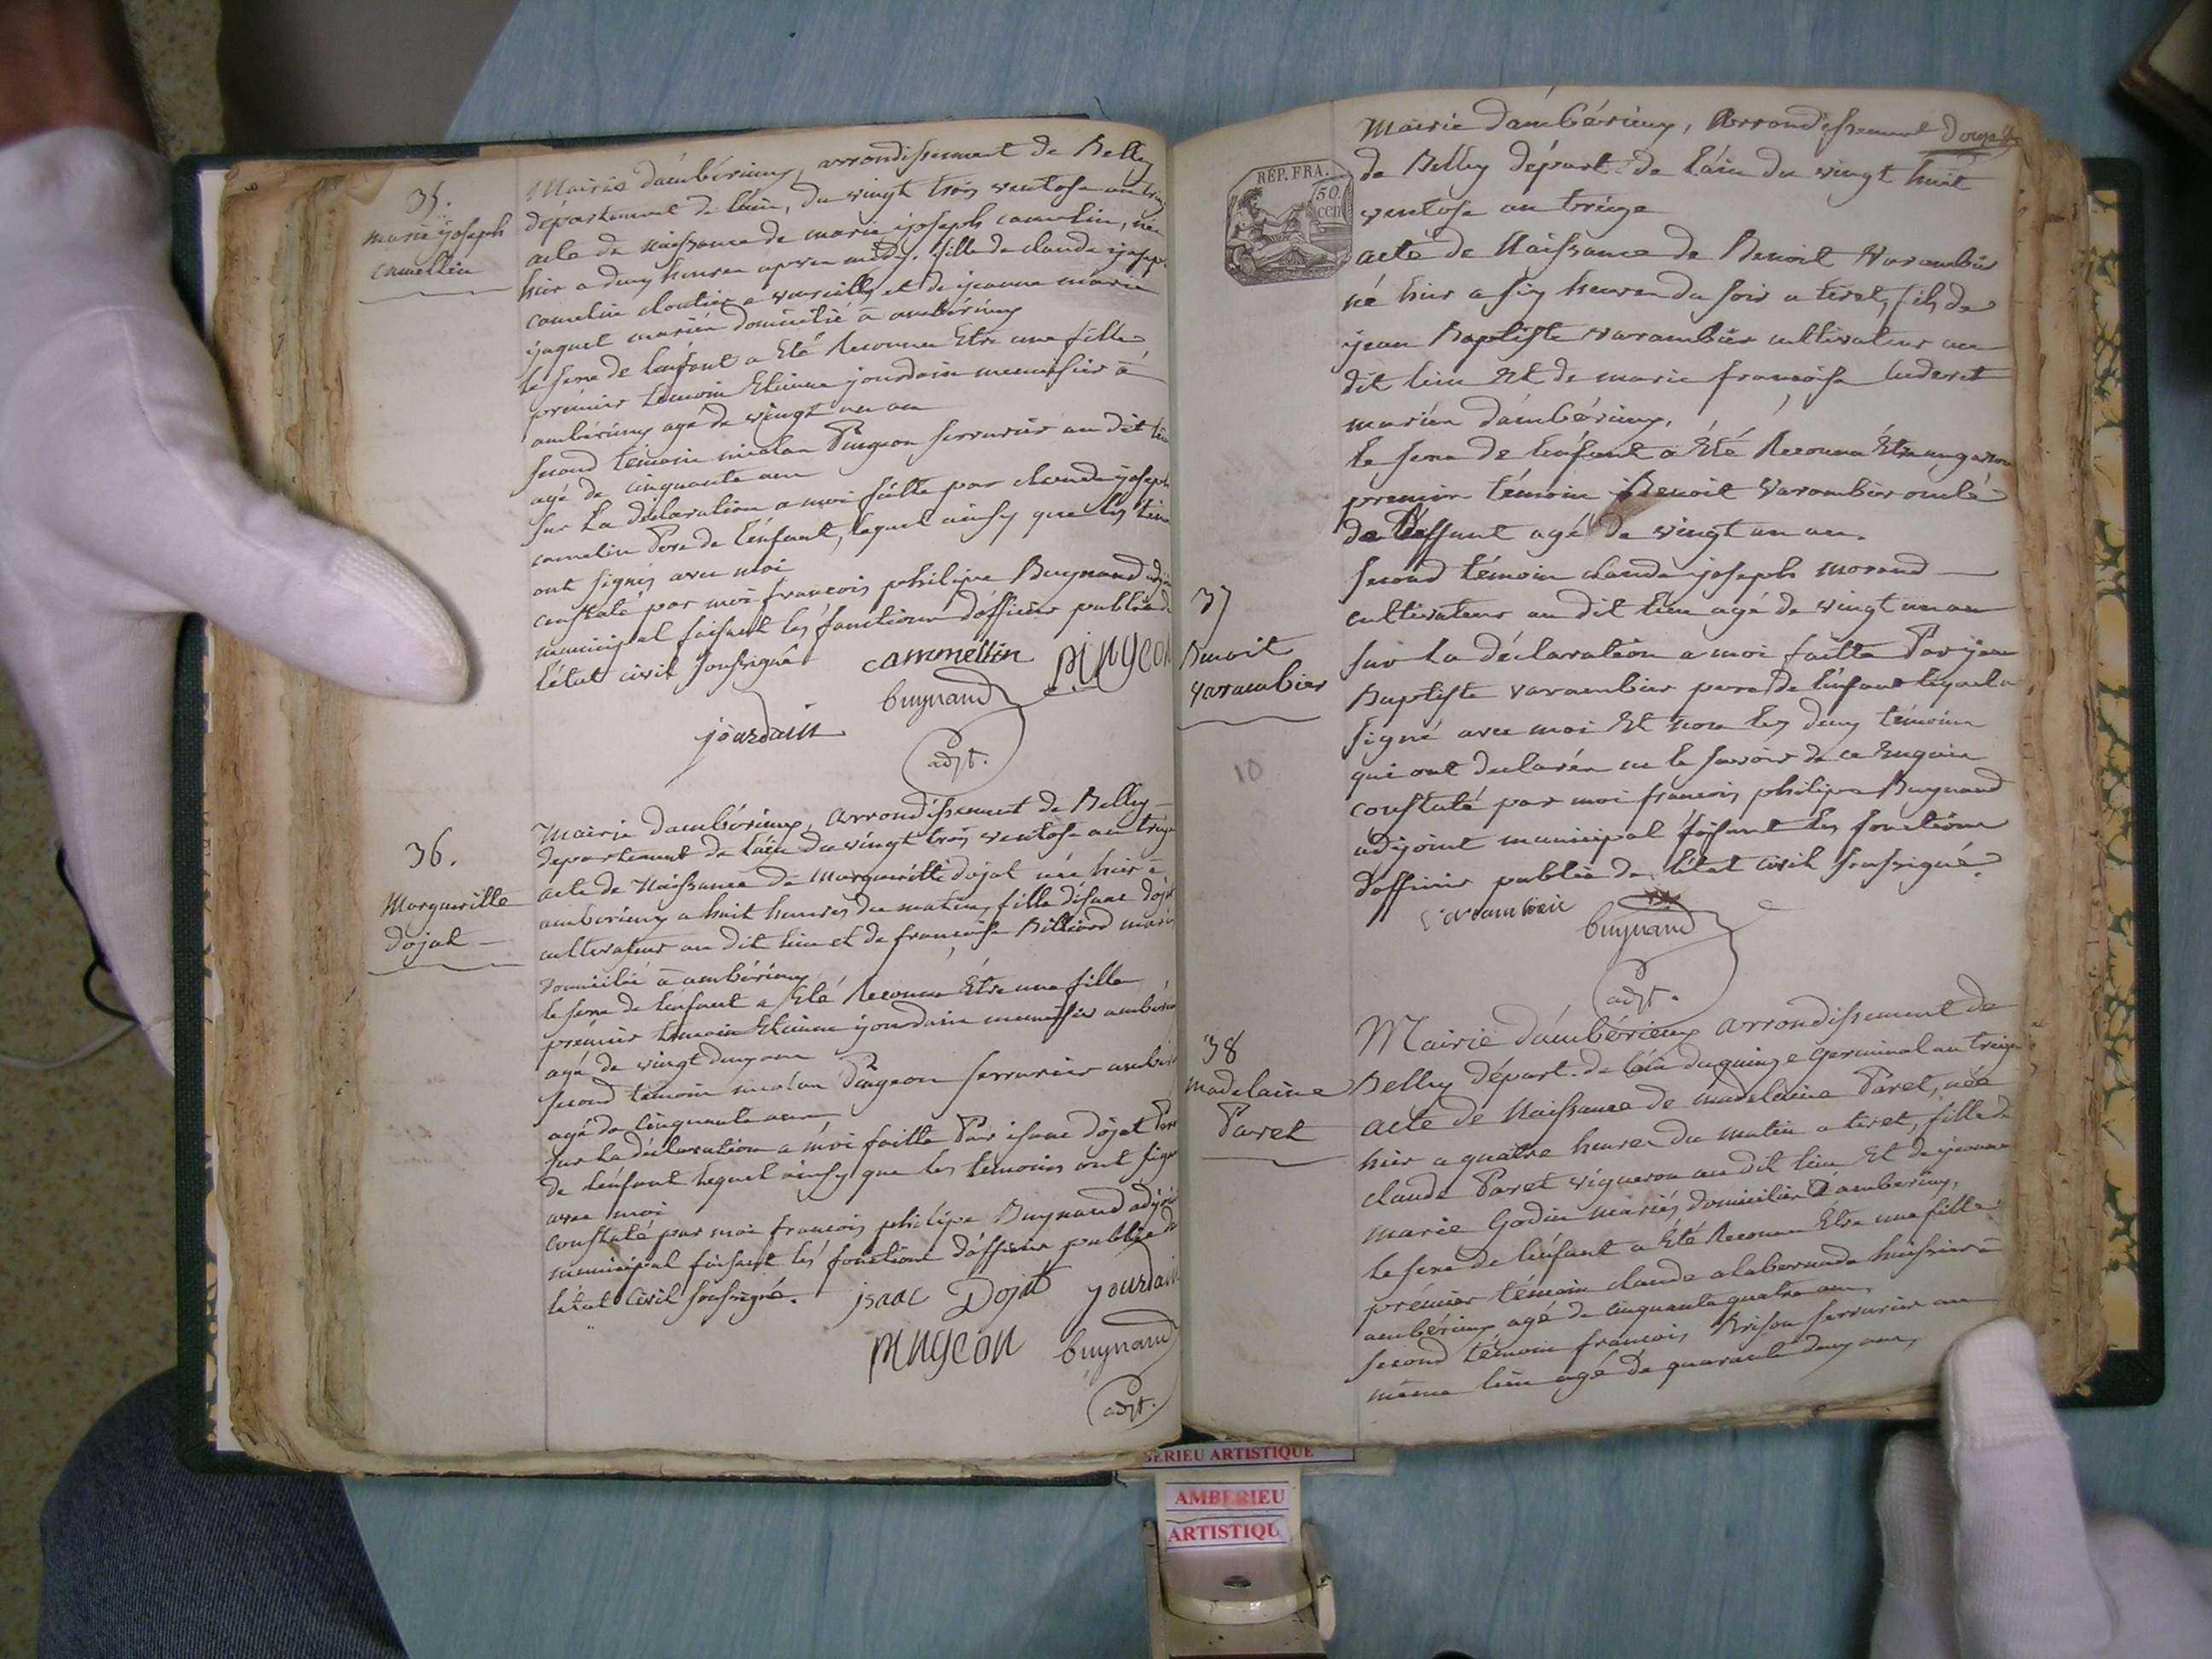 35.
marie joseph
camellin
Mairie d'ambérieux, arrondissement de Belley
département de l'ain, du vingt trois ventose an treize
acte de naissance de marie joseph camelin, née
hier a deux heures apres midy. fille de claude joseph
camelin cloutier a vareilly et de jeanne marie
jaquet mariés domicilié a ambérieux
le sexe de l'enfant a été Reconnu Etre une fille
premier témoin Etienne jourdain menuisier à
ambérieux agé de vingt un an
second témoin nicolas Pingeon serrurier au dit lieu
agé de cinquante ans
sur la déclaration a moi faitte par claude joseph
camelin Pere de l'enfant, lequel ainsy que les témoins
ont signés avec moi
constaté par moi francois philipe Buynand adjoint
municipal faisant les fonctions d'officier public de
l'état civil soussigné
cammellin pingeon
buynand
jourdain
adjt.
36.
Margueritte
dojat
Mairie d'ambérieux, arrondissement de Belley
departement de l'ain du vingt trois ventose an treize
acte de Naissance de Margueritte dojat née hier à
amberieux a huit heures du matin, fille d'isaac dojat
cultivateur au dit lieu et de francoise Billiard mariés
domicilié a ambérieux
le sexe de l'enfant a Eté Reconnu Etre une fille
prémier témoin Etienne jourdain menuisier ambérieux
agé de vingt deux ans
second témoin nicolas Pingeon serrurier ambérieux
agé de cinquante ans
sur la déclaration a moi faitte Par isaac dojat Pere
de l'enfant lequel ainsy que les témoins ont signé
avec moi
constaté par moi francois philipe Buynand adjoint
municipal faisant les fonctions d'officier public de
l'état civil soussigné.
isaac Dojat jourdain
pingeon buynand
adjt.
RÉP. FRA.
50
cen
Mairie d'ambérieux, Arrondissement
de Belley départ. de l'ain du vingt huit
ventose an treize
acte de Naissance de Benoit Varambier
né hier a six heures du soir a tiret, fils de
jean Baptiste varambier cultivateur au
dit lieu Et de marie francoise
mariés d'ambérieux,
le sexe de l'enfant a Eté Reconnu Etre un garcon
premier témoin Benoit Varambier oncle
de l'effant agé de vingt un an.
second témoin claude joseph morand
cultivateur au dit lieu agé de vingt un an
sur la déclaration a moi faitte Par jean
Baptiste varambier pere de l'enfant lequel a
signé avec moi Et non les deux témoins
qui ont declarés ne le savoir de ce Enquis
constaté par moi francois philipe Buynand
adjoint municipal faisant les fonctions
d'officier public de l'état civil soussigné.
37
Benoit
varambier
10
varambier
buynand
adjt.
38
Madelaine
Paret
Mairie d'ambérieux arrondissement de
Belley départ. de l'ain du quinze Germinal an treize
acte de Naissance de madelaine Paret, née
hier a quatre heures du matin a tiret, fille de
claude Paret vigneron au dit lieu Et de jeanne
marie Godin mariés domiciliés d'ambérieux,
le sexe de l'enfant a Eté Reconnu Etre une fille
prémier témoin claude alabernade huissier à
ambérieux agé de cinquante quatre an,
second témoin francois Brison serrurier au
même lieu agé de quarante deux ans,
BERIEU ARTISTIQUE
AMBERIEU
ARTISTIQU